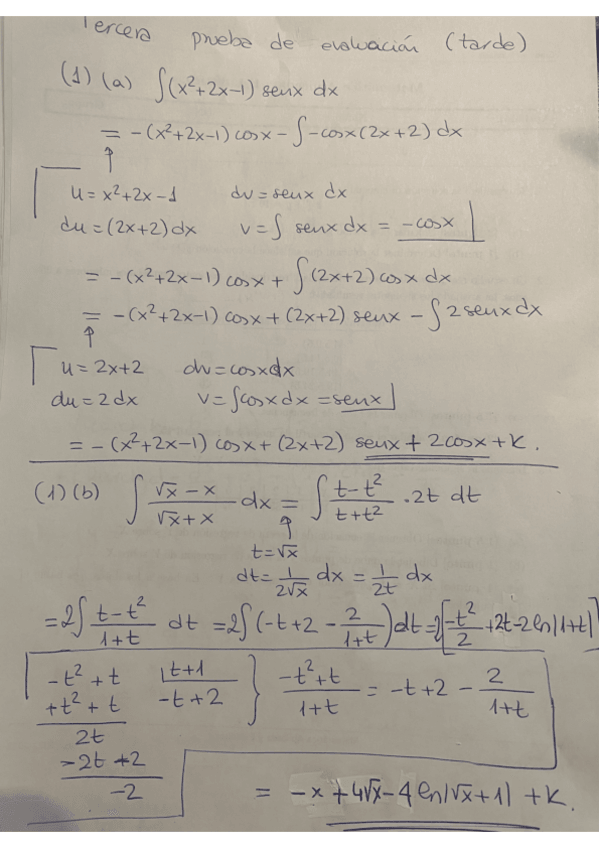 Tercera prueba de evaluación (tarde)
(1) (a) ∫(x²+2x-1) senx dx
= -(x²+2x-1) cosx - ∫-cosx(2x+2) dx
↑
u = x²+2x-1 dv = senx dx
du = (2x+2) dx v = ∫ senx dx = -cosx
= -(x²+2x-1) cosx + ∫(2x+2) cosx dx
= -(x²+2x-1) cosx + (2x+2) senx - ∫2senx dx
↑
u = 2x+2 dv = cosx dx
du = 2dx v = ∫cosx dx = senx
= -(x²+2x-1) cosx + (2x+2) senx + 2cosx + K.
(1) (b) ∫ (√x - x)/(√x + x) dx = ∫ (t-t²)/(t+t²) · 2t dt
↑
t = √x
dt = 1/(2√x) dx = 1/(2t) dx
= 2∫ (t-t²)/(1+t) dt = 2∫(-t+2 - 2/(1+t)) dt = 2[-t²/2 + 2t - 2ln|1+t|]
-t² + t |t+1 } (-t²+t)/(1+t) = -t+2 - 2/(1+t)
+t² + t -t+2
2t
-2t +2
-2
= -x + 4√x - 4 ln|√x+1| + K.